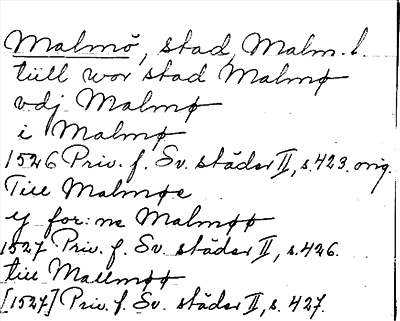 Malmö, stad, Malm. l.
tiill wor stad Malmø
vdj Malmø
i Malmø
1526 Priv. f. Sv. städer II, s. 423. orig.
Till Malmøe
y for: ne Malmøø
1527 Priv. f. Sv. städer II, s. 426.
till Mallmøø
[1527] Priv. f. Sv. städer II, s. 427.